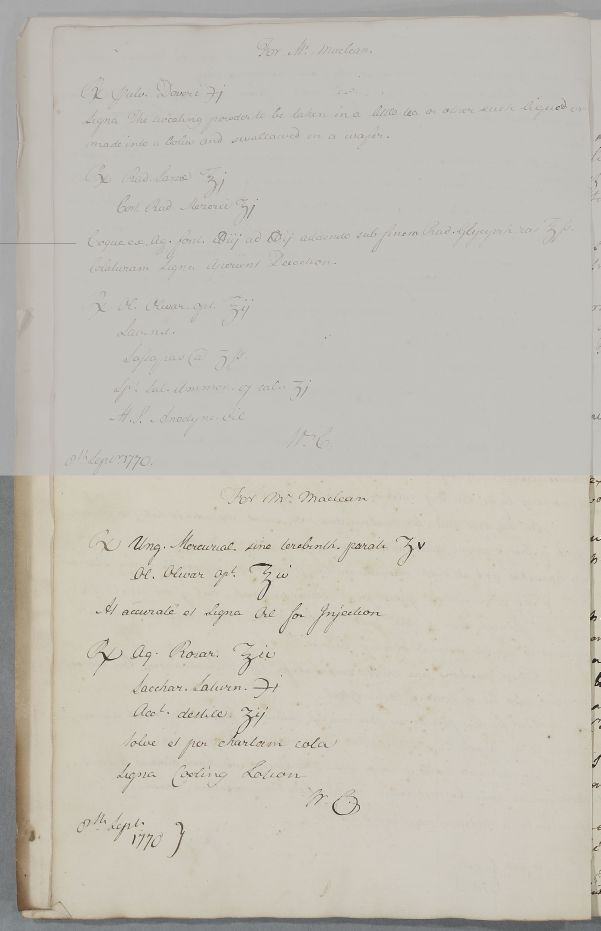 For Mr. Maclean.
℞ Pulv. Doveri ℈j
Signa The sweating powder to be taken in a little tea or other such liquid or
made into a bolus and swallowed in a wafer.
℞ Rad. Sarsæ ℥j
Cort. Rad. Mezerei ʒj
Coque ex Aq. font. ad addendo sub finem Rad. Glycyrrh. ras ℥ß.
Colaturam Signa Decoction.
℞ Ol. Olivar. opt. ℥ij
Lavend.
Sassafras a ʒß.
Spt. Sal. Ammon. c calc. ʒj
M. S. Anodyne Oil
W. C.
8th. Septr. 1770.
For Mr. Maclean
℞ Ung. Mercurial. sine terebinth. parati ʒv
Ol. Olivar opt.
M accuratè et Signa Oil for Injection
℞ Aq. Rosar.
Sacchar. Saturn. ℈j
Acet. destill. ʒij
Solve et per chartam cola
Signa Cooling Lotion
W C.
8th. Septr.
1770 }